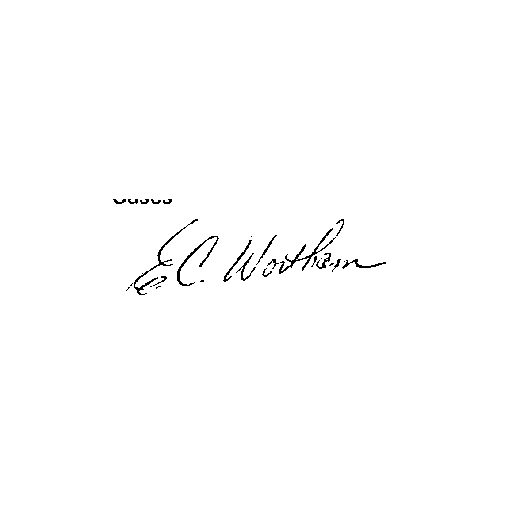 E.C. Wortham